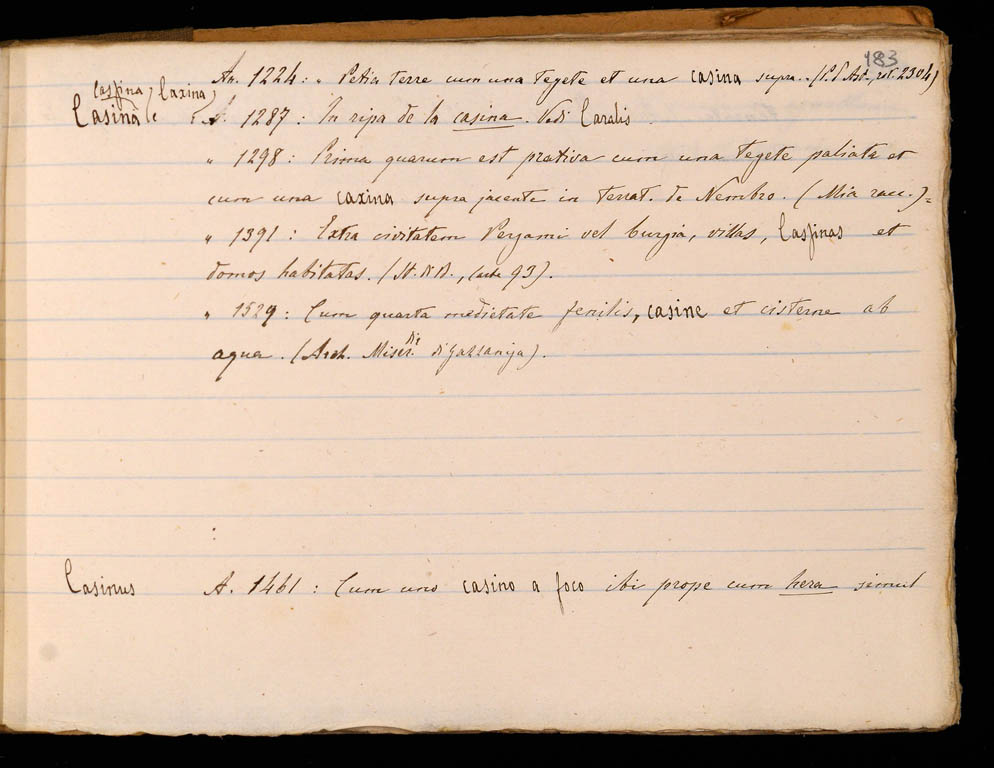 183
An. 1224: " Petia terre cum una tegete et una casina supra.. (P. 2304)
Casſina, Caxina,
Casina A. 1287: In ripa de la casina. Vedi Caralis.
" 1298: Prima quarum est prativa cum una tegete paliata et
cum una caxina supra jacente in territ. de Nembro. (Mia racc.)=
" 1391: Extra civitatem Pergami vel burgia, villas, Casſinas et
domos habitatas. (St. , carte 93).
" 1529: Cum quarta medietate fenilis, casine et cisterne ab
aqua. (Arch. Miser.dia di Gazzaniga).
Casinus A. 1461: Cum uno casino a foco ibi prope cum hera simul